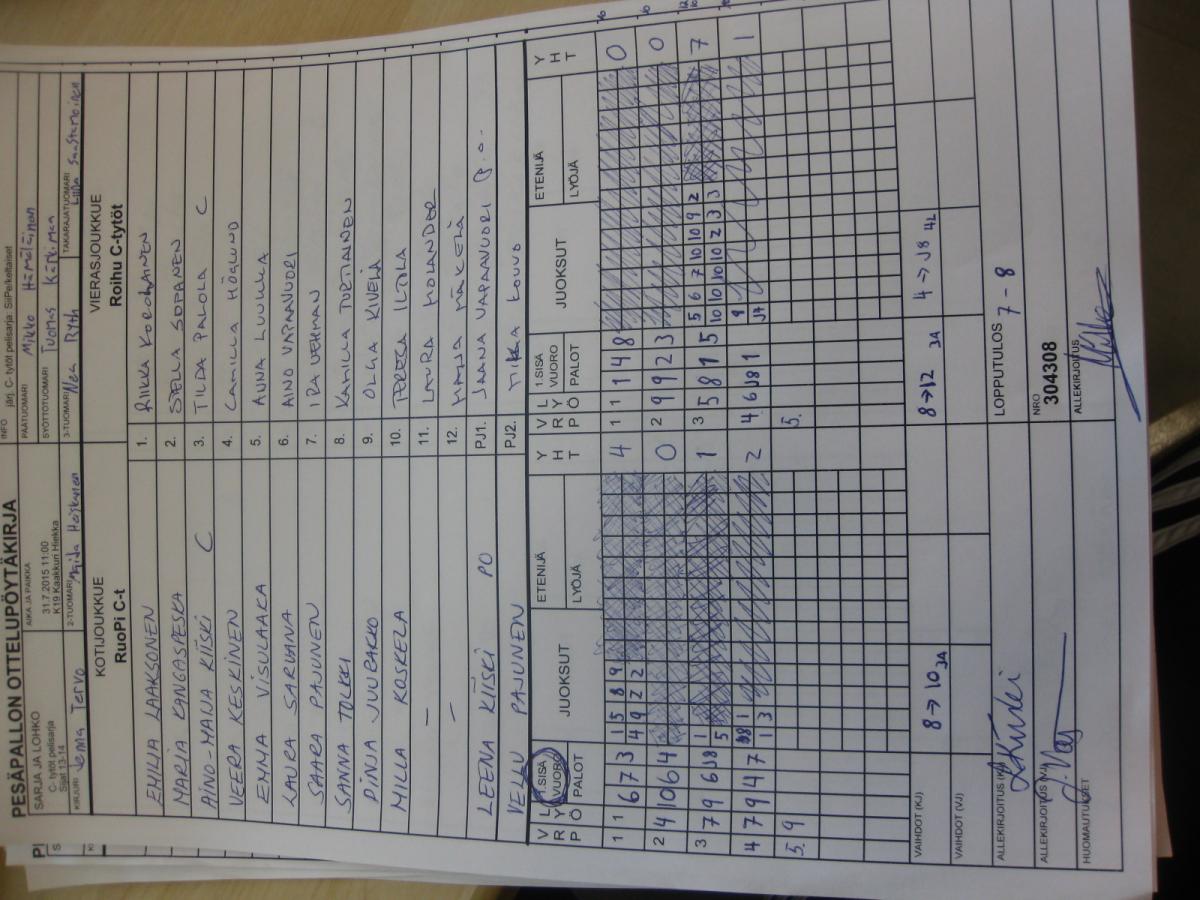 PESÄPALLON OTTELUPÖYTÄKIRJA
INFO
järj. C- tytöt pelisarja: SiiPelkeltaiset
SARJA JA LOHKO
C- tytöt pelisarja
Sijat 13-14
AIKA JA PAIKKA
31.7.2015 11:00
K19 Kaakkuri Hiekka
PÄÄTUOMARI Mikko Hämäläinen
SYÖTTÖTUOMARI Tuomas
KIRJURI Jenna Tervo
2-TUOMARI Heiskanen
3-TUOMARI Nea
TAKARAJATUOMARI
KOTIJOUKKUE
RuoPi C-t
VIERASJOUKKUE
Roihu C-tytöt
EMILIA LAAKSONEN 1. RIIKKA KORCHAINEN
MARJA KANGASPESKA 2. STELLA SOPANEN
AINO-MAIJA KIISKI C 3. TILDA PALOLA C
VEERA KESKINEN 4. CAMILLA HÖGLUND
EMMA VISULAAKA 5. ANNA LUUKKA
LAURA SARVANNA 6. AINO VAPAAVUORI
SAARA PAJUNEN 7. IRA VEHMAN
SANNA TOLKKI 8. KAMILLA TURTIAINEN
PINJA JUUPAKKO 9. OLGA KIVELÄ
MILLA KOSKELA 10. TERESA ILTOLA
— 11. LAURA HOLANDER
— 12. MAIJA MÄKELÄ
LEENA KIISKI PO PJ1. JAANA VAPAAVUORI P.O.
VELLU PAJUNEN PJ2. MIKKA
V R P L Y Ö 1.SISÄ VUORO PALOT JUOKSUT ETENIJÄ LYÖJÄ Y H T V R P L Y Ö 1.SISÄ VUORO PALOT JUOKSUT ETENIJÄ LYÖJÄ Y H T
1 1 6 7 3 1 5 8 9 4 1 1 1 4 8 0
4 9 2 2
2 4 10 6 4 0 2 9 9 2 3 0
3 7 9 6 J8 1 1 3 5 8 1 5 5 6 7 10 10 9 2 7
5 10 10 10 2 3 3
4 7 9 4 7 J8 1 2 4 6 J8 1 9 1
1 3 J7
5. 9 5.
VAIHDOT (KJ) 8 → 10 3A 8 → 12 3A 4 → J8 4L
VAIHDOT (VJ)
ALLEKIRJOITUS (KJ) LOPPUTULOS 7 - 8
ALLEKIRJOITUS (VJ) NRO 304308
HUOMAUTUKSET ALLEKIRJOITUS